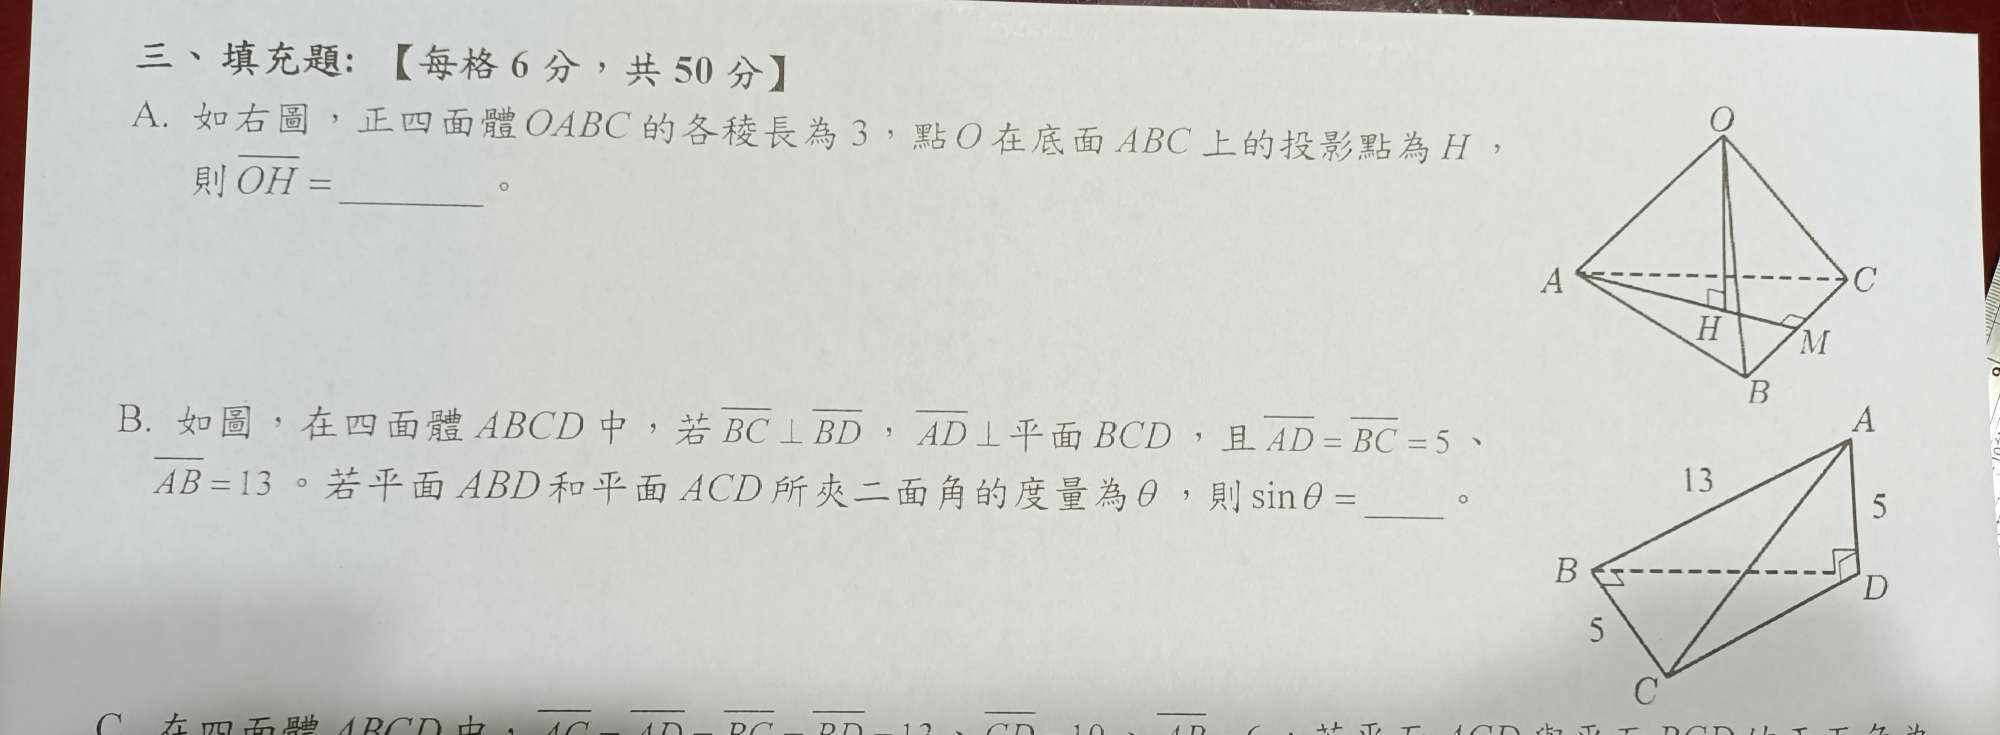 三、填充題:【每格 6 分,共 50 分】
A. 如右圖,正四面體 OABC 的各稜長為 3,點 O 在底面 ABC 上的投影點為 H,
則 OH = ______。
O
A
C
H
M
B
B. 如圖,在四面體 ABCD 中,若 BC ⊥ BD,AD ⊥ 平面 BCD,且 AD = BC = 5、
AB = 13。若平面 ABD 和平面 ACD 所夾二面角的度量為 θ,則 sin θ = ____。
A
13
5
B
D
5
C
C 在四面體 ABCD 中,AC = AD = BC = BD